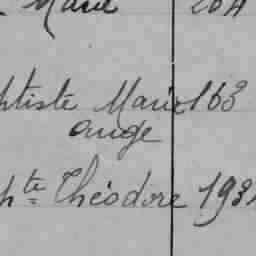 Marie 204
ptiste Marie 163
ange
pte Théodore 193